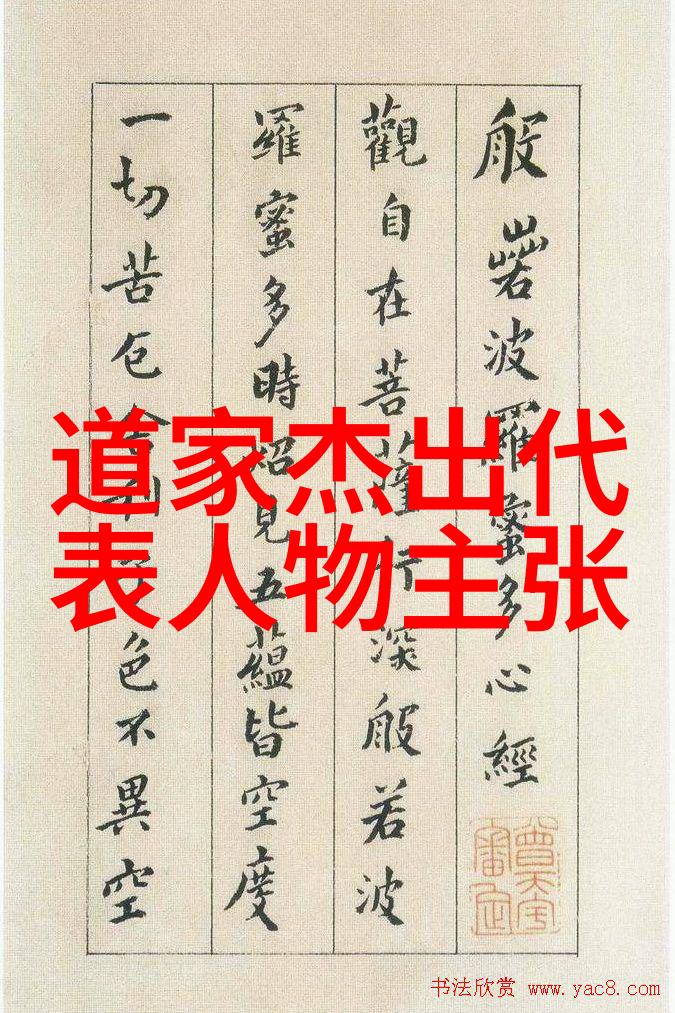 般若波羅蜜多心經
觀自在菩薩行深般若波
羅蜜多時照見五蘊皆空度
一切苦厄舍利子色不異空
道家杰出代
表人物主张
书法欣赏 www.yac8.com